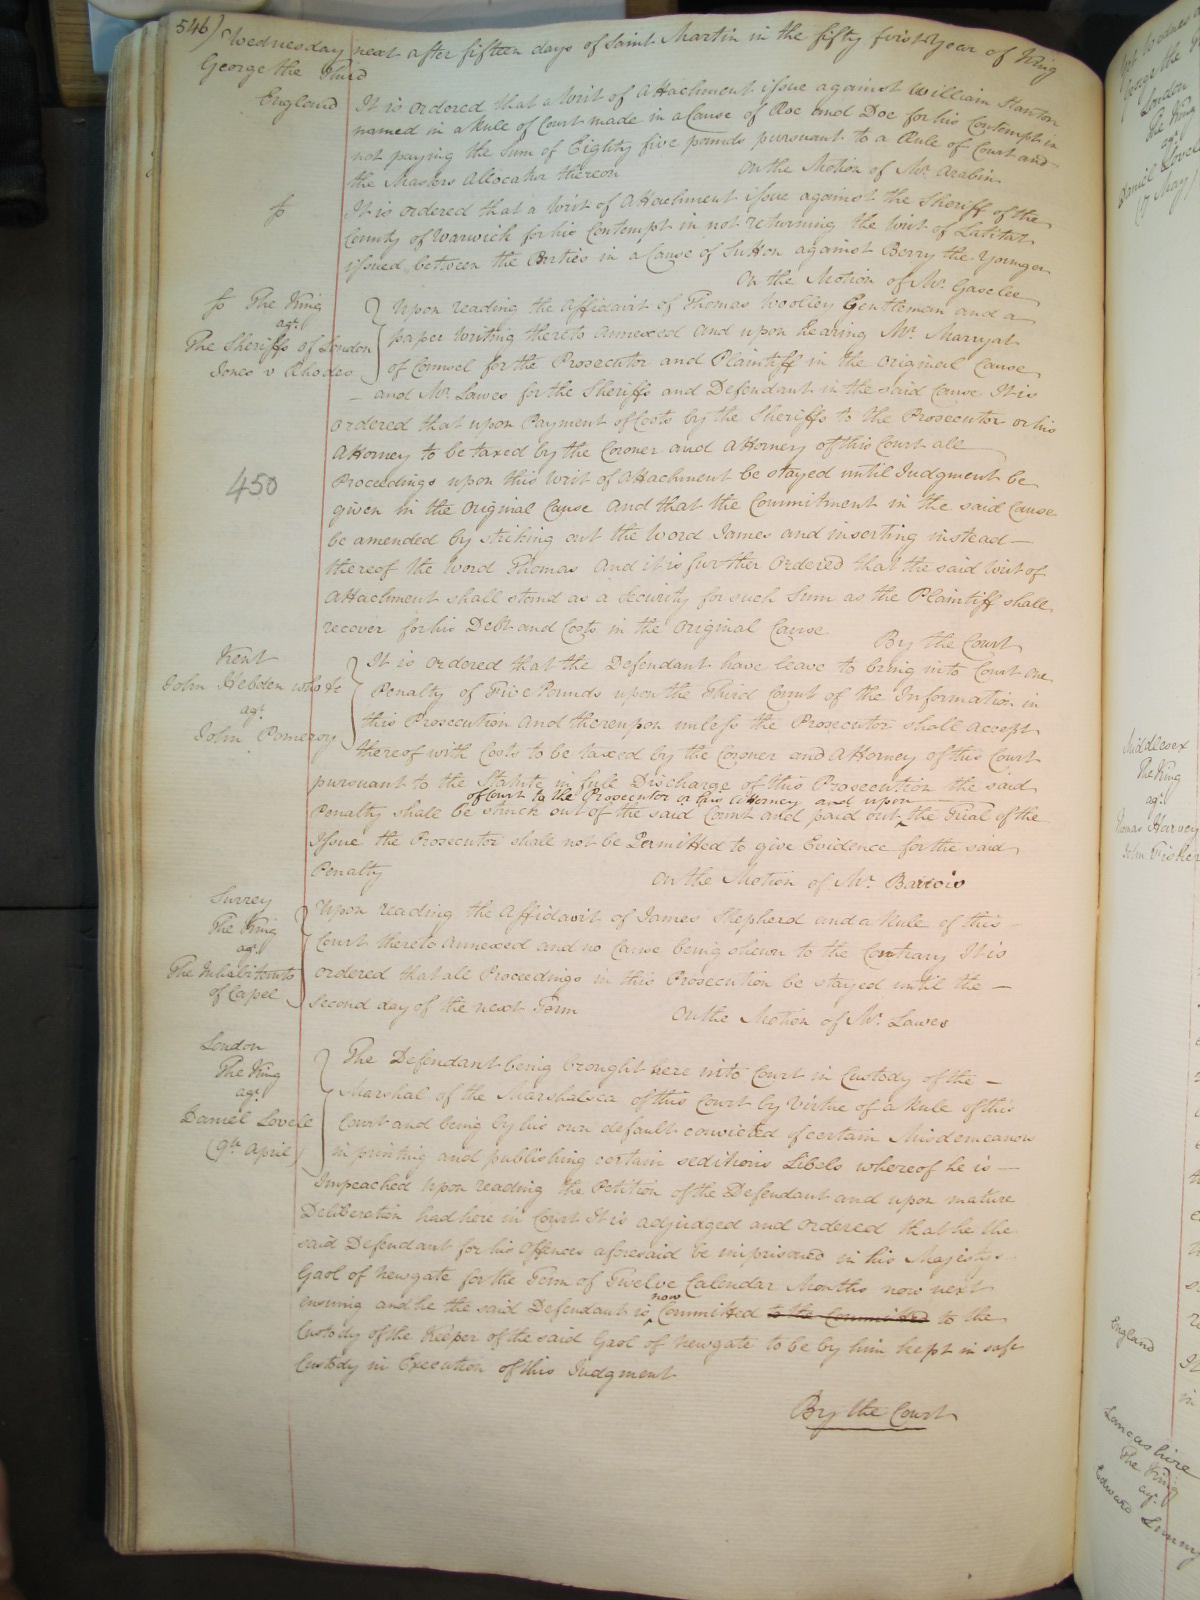 546) Wednesday next after fifteen days of Saint Martin in the fifty first Year of King
George the Third
England It is ordered that a Writ of Attachment issue against William Stanton
named in a Rule of Court made in a Cause of Roe and Doe for his Contempt in
not paying the Sum of Eighty five pounds pursuant to a Rule of Court and
the Masters Allocatur thereon On the Motion of Mr. Arabin
It is ordered that a Writ of Attachment issue against the Sheriff of the
County of Warwick for his Contempt in not returning the Writ of Latitat
issued between the Parties in a Cause of Sutton against Berry the Younger
On the Motion of Mr. Gaselee
The King
agt.
The Sheriffs of London
Jones v Rhodes
Upon reading the Affidavit of Thomas Woolley Gentleman and a
paper Writing thereto annexed and upon hearing Mr. Marryat
of Counsel for the Prosecutor and Plaintiff in the original Cause
– and Mr. Lawes for the Sheriffs and Defendant in the said Cause It is
ordered that upon Payment of Costs by the Sheriffs to the Prosecutor or his
Attorney to be taxed by the Coroner and Attorney of this Court all
450
Proceedings upon this Writ of Attachment be stayed until Judgment be
given in the Original Cause and that the Commitment in the said Cause
be amended by striking out the Word James and inserting instead –
thereof the Word Thomas And it is further ordered that the said Writ of
Attachment shall stand as a Security for such Sum as the Plaintiff shall
recover for his Debt and Costs in the Original Cause By the Court
Kent
John Hebden who &c
agt.
John Pomeroy
It is ordered that the Defendant have leave to bring into Court one
Penalty of Five Pounds upon the Third Count of the Information in
this Prosecution and thereupon unless the Prosecutor shall accept
thereof with Costs to be taxed by the Coroner and Attorney of this Court
pursuant to the Statute in full Discharge of this Prosecution the said
of Court to the Prosecutor or his Attorney and upon
Penalty shall be struck out of the said Count and paid out ^ the Trial of the
Issue the Prosecutor shall not be Permitted to give Evidence for the said
Penalty On the Motion of Mr. Barrow
Surrey
The King
agt.
The Inhabitants
of Capel
Upon reading the Affidavit of James Shepherd and a Rule of this
Court thereto annexed and no Cause being shewn to the Contrary It is
ordered that all Proceedings in this Prosecution be stayed until the –
second day of the next Term On the Motion of Mr. Lawes
London
The King
agt.
Daniel Lovell
(9th April)
The Defendant being brought here into Court in Custody of the –
Marshal of the Marshalsea of this Court by Virtue of a Rule of this
Court and being by his own default convicted of certain Misdemeanors
in printing and publishing certain seditious Libels whereof he is –
Impeached Upon reading the Petition of the Defendant and upon mature
Deliberation had here in Court It is adjudged and ordered that he the
said Defendant for his Offences aforesaid be imprisoned in his Majestys
Gaol of Newgate for the Term of Twelve Calendar Months now next
now
ensuing and he the said Defendant is ^ Committed to the Committed to the
Custody of the Keeper of the said Gaol of Newgate to be by him kept in safe
Custody in Execution of this Judgment
By the Court
London
The King
agt.
Daniel Lovell
(7 May)
Middlesex
The King
agt.
Thomas Harvey
John Fisher
England
Lancashire
The King
agt.
Edward